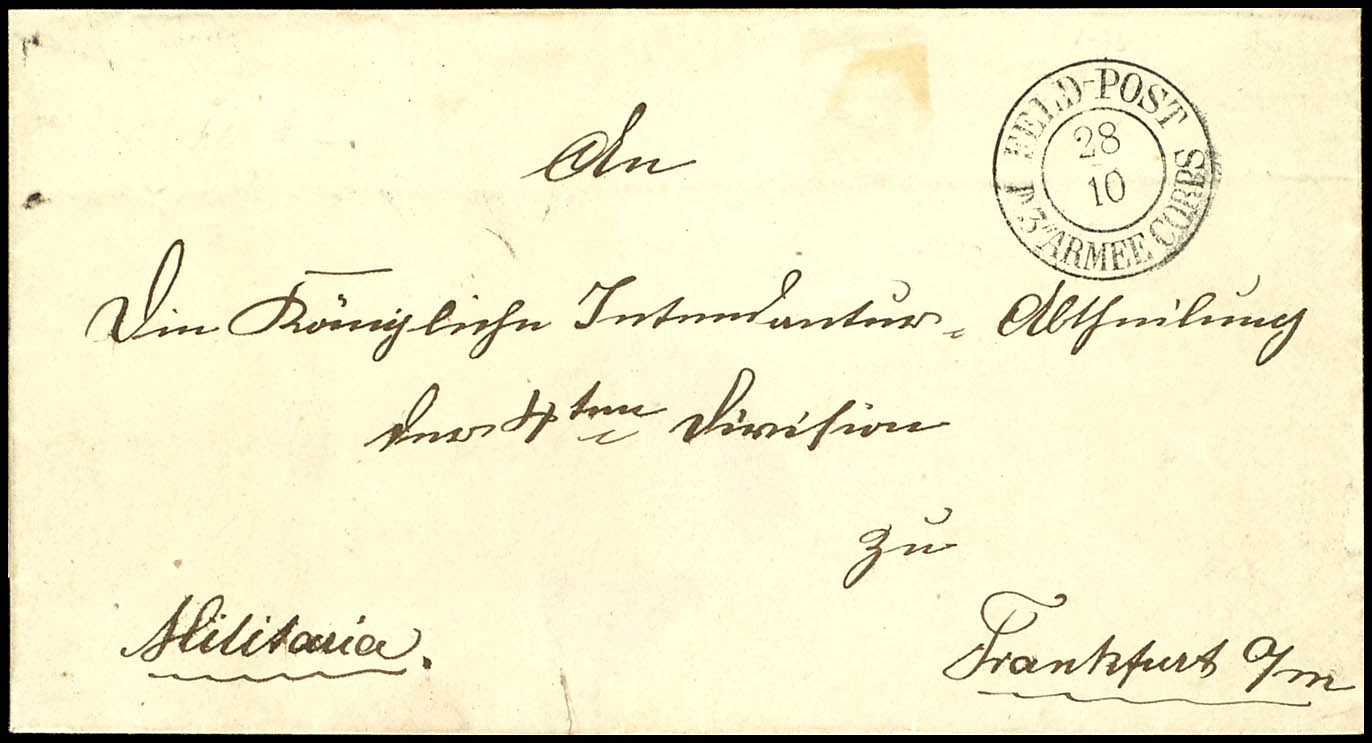 FELD-POST
28
10
D. 3' ARMEE CORPS
An
Die Königliche Intendantur-Abtheilung
der 4ten Division
zu
Militaria.
Frankfurt a/m